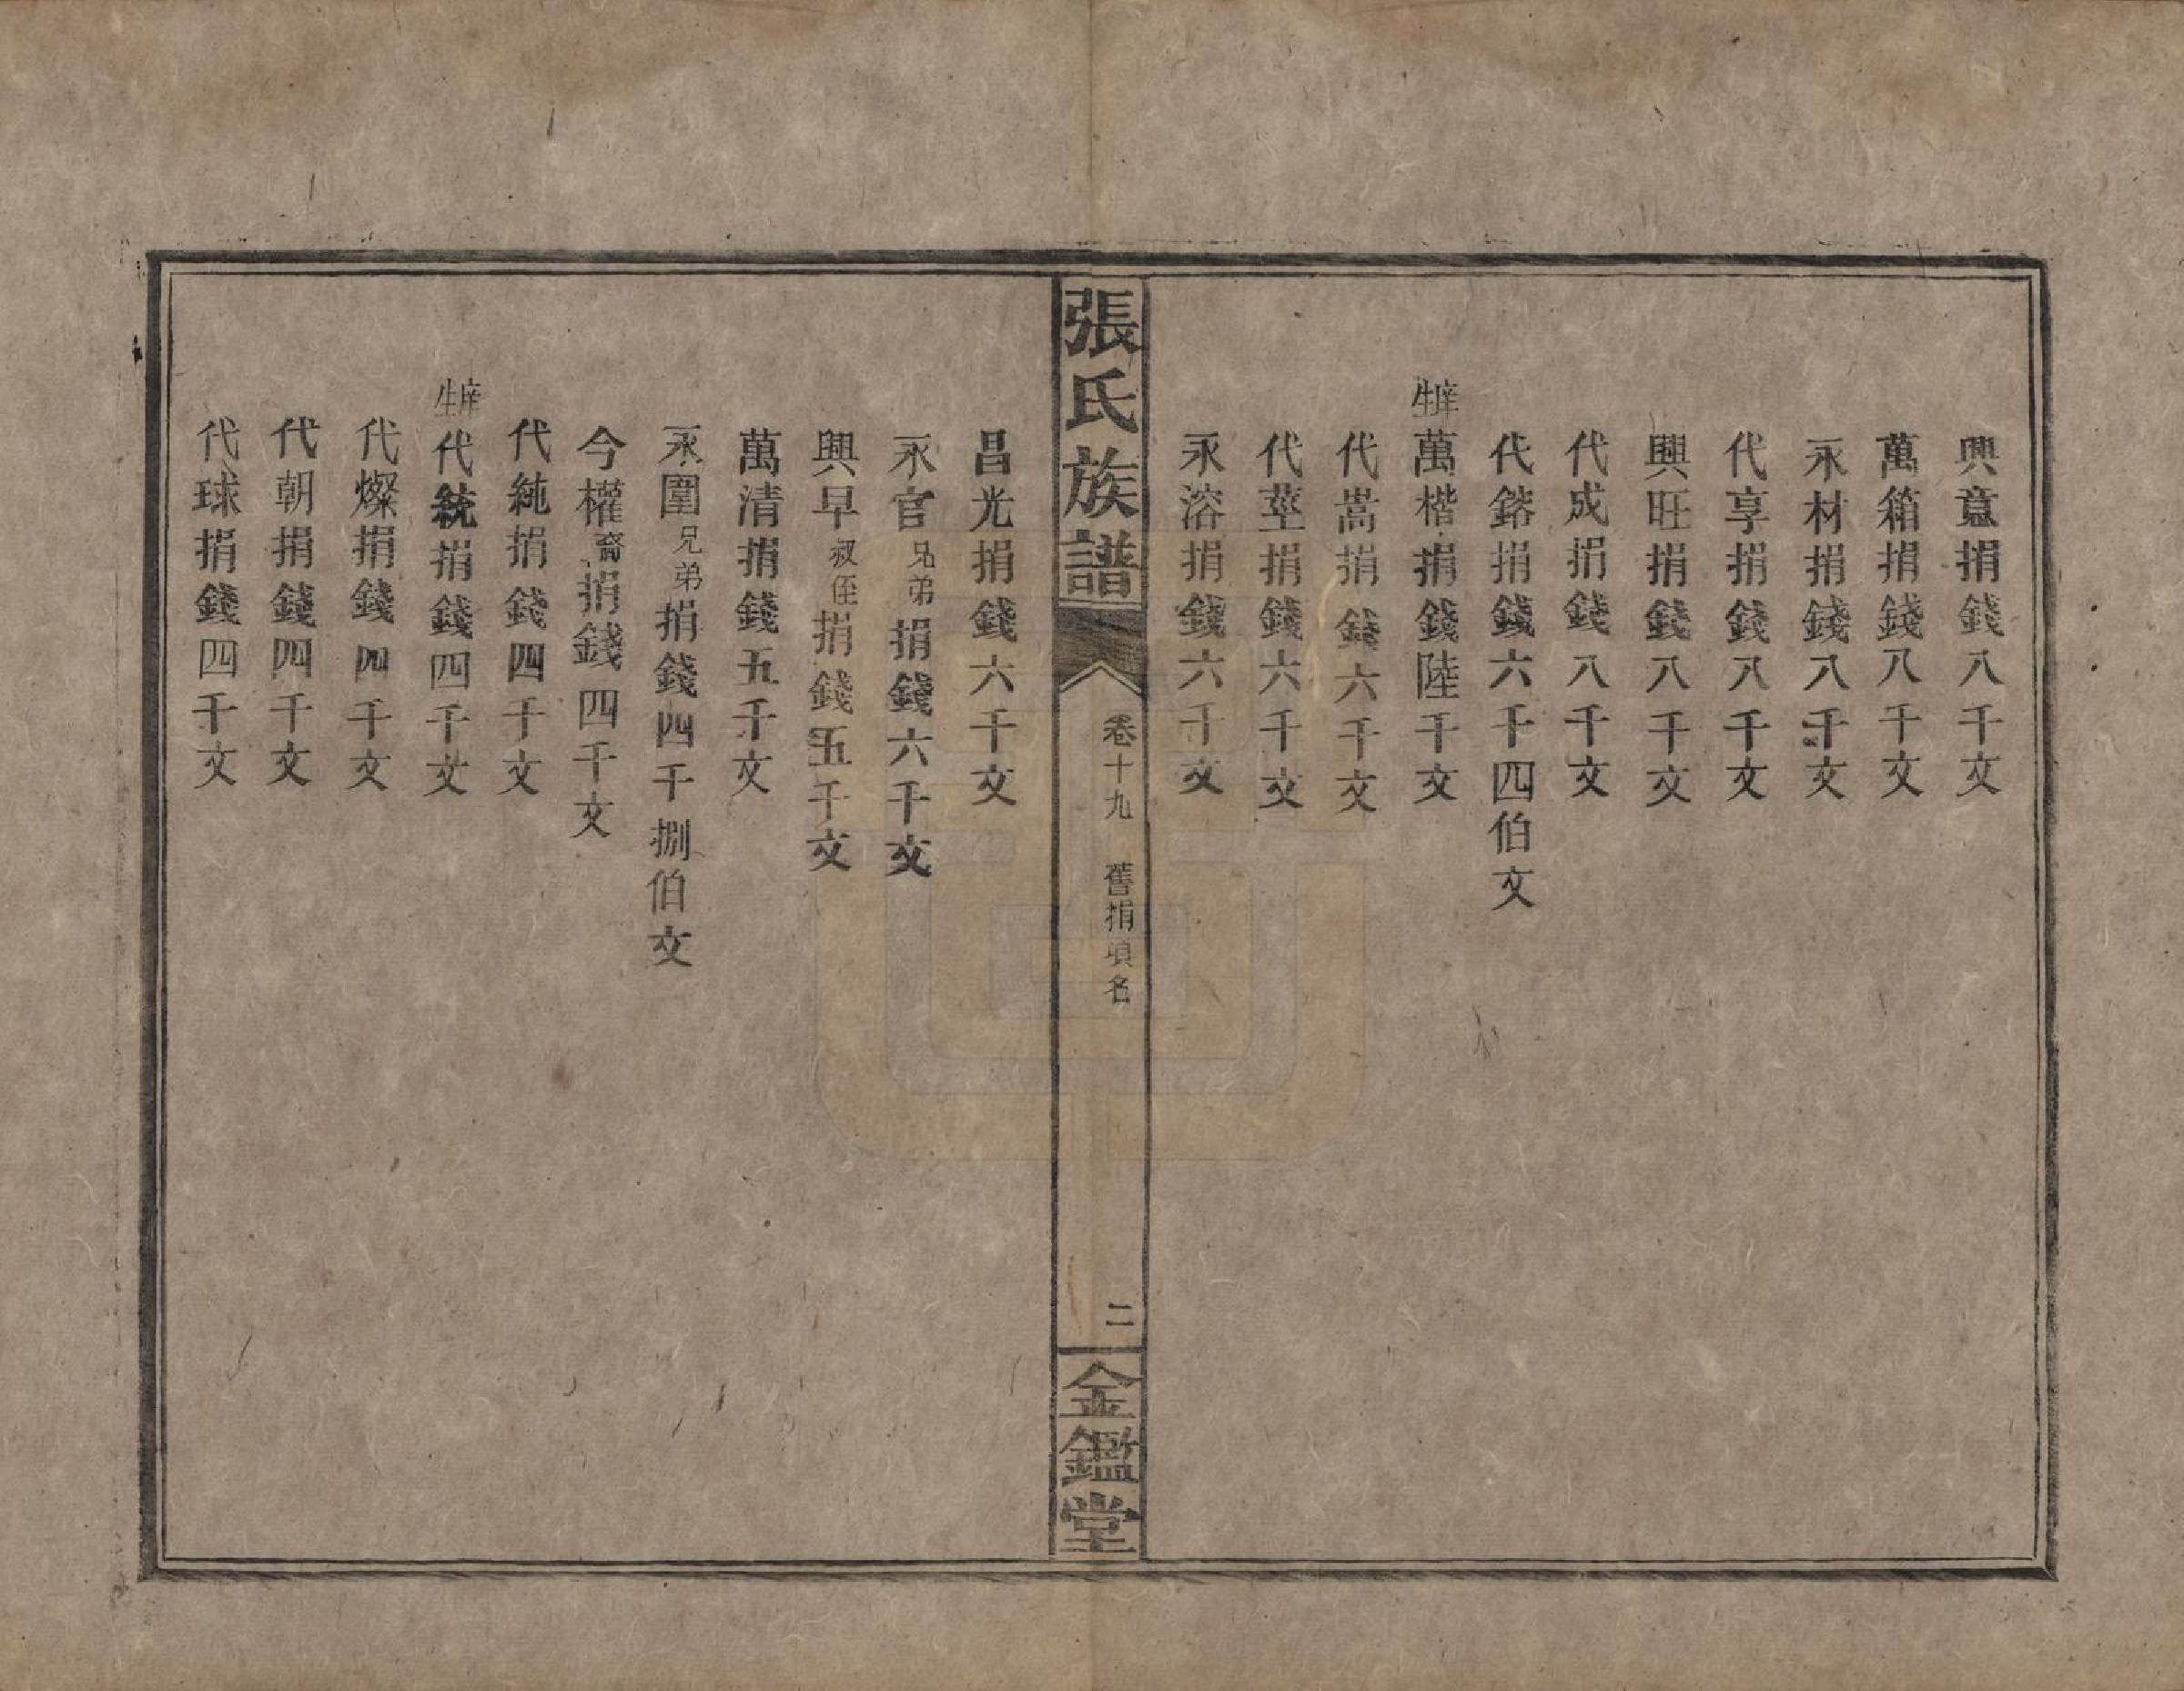 興意捐錢八千文
萬箱捐錢八千文
永材捐錢八千文
代享捐錢八千文
興旺捐錢八千文
代成捐錢八千文
代鎔捐錢六千四伯文
庠生萬楷捐錢陸千文
代嵩捐錢六千文
代莖捐錢六千文
永溶捐錢六千文
張氏族譜
卷十九 舊捐項名
二
金鑑堂
昌光捐錢六千文
永官兄弟捐錢六千文
興早叔侄捐錢五千文
萬清捐錢五千文
永圍兄弟捐錢四千捌伯文
今權裔捐錢四千文
代純捐錢四千文
庠生代統捐錢四千文
代燦捐錢四千文
代朝捐錢四千文
代球捐錢四千文